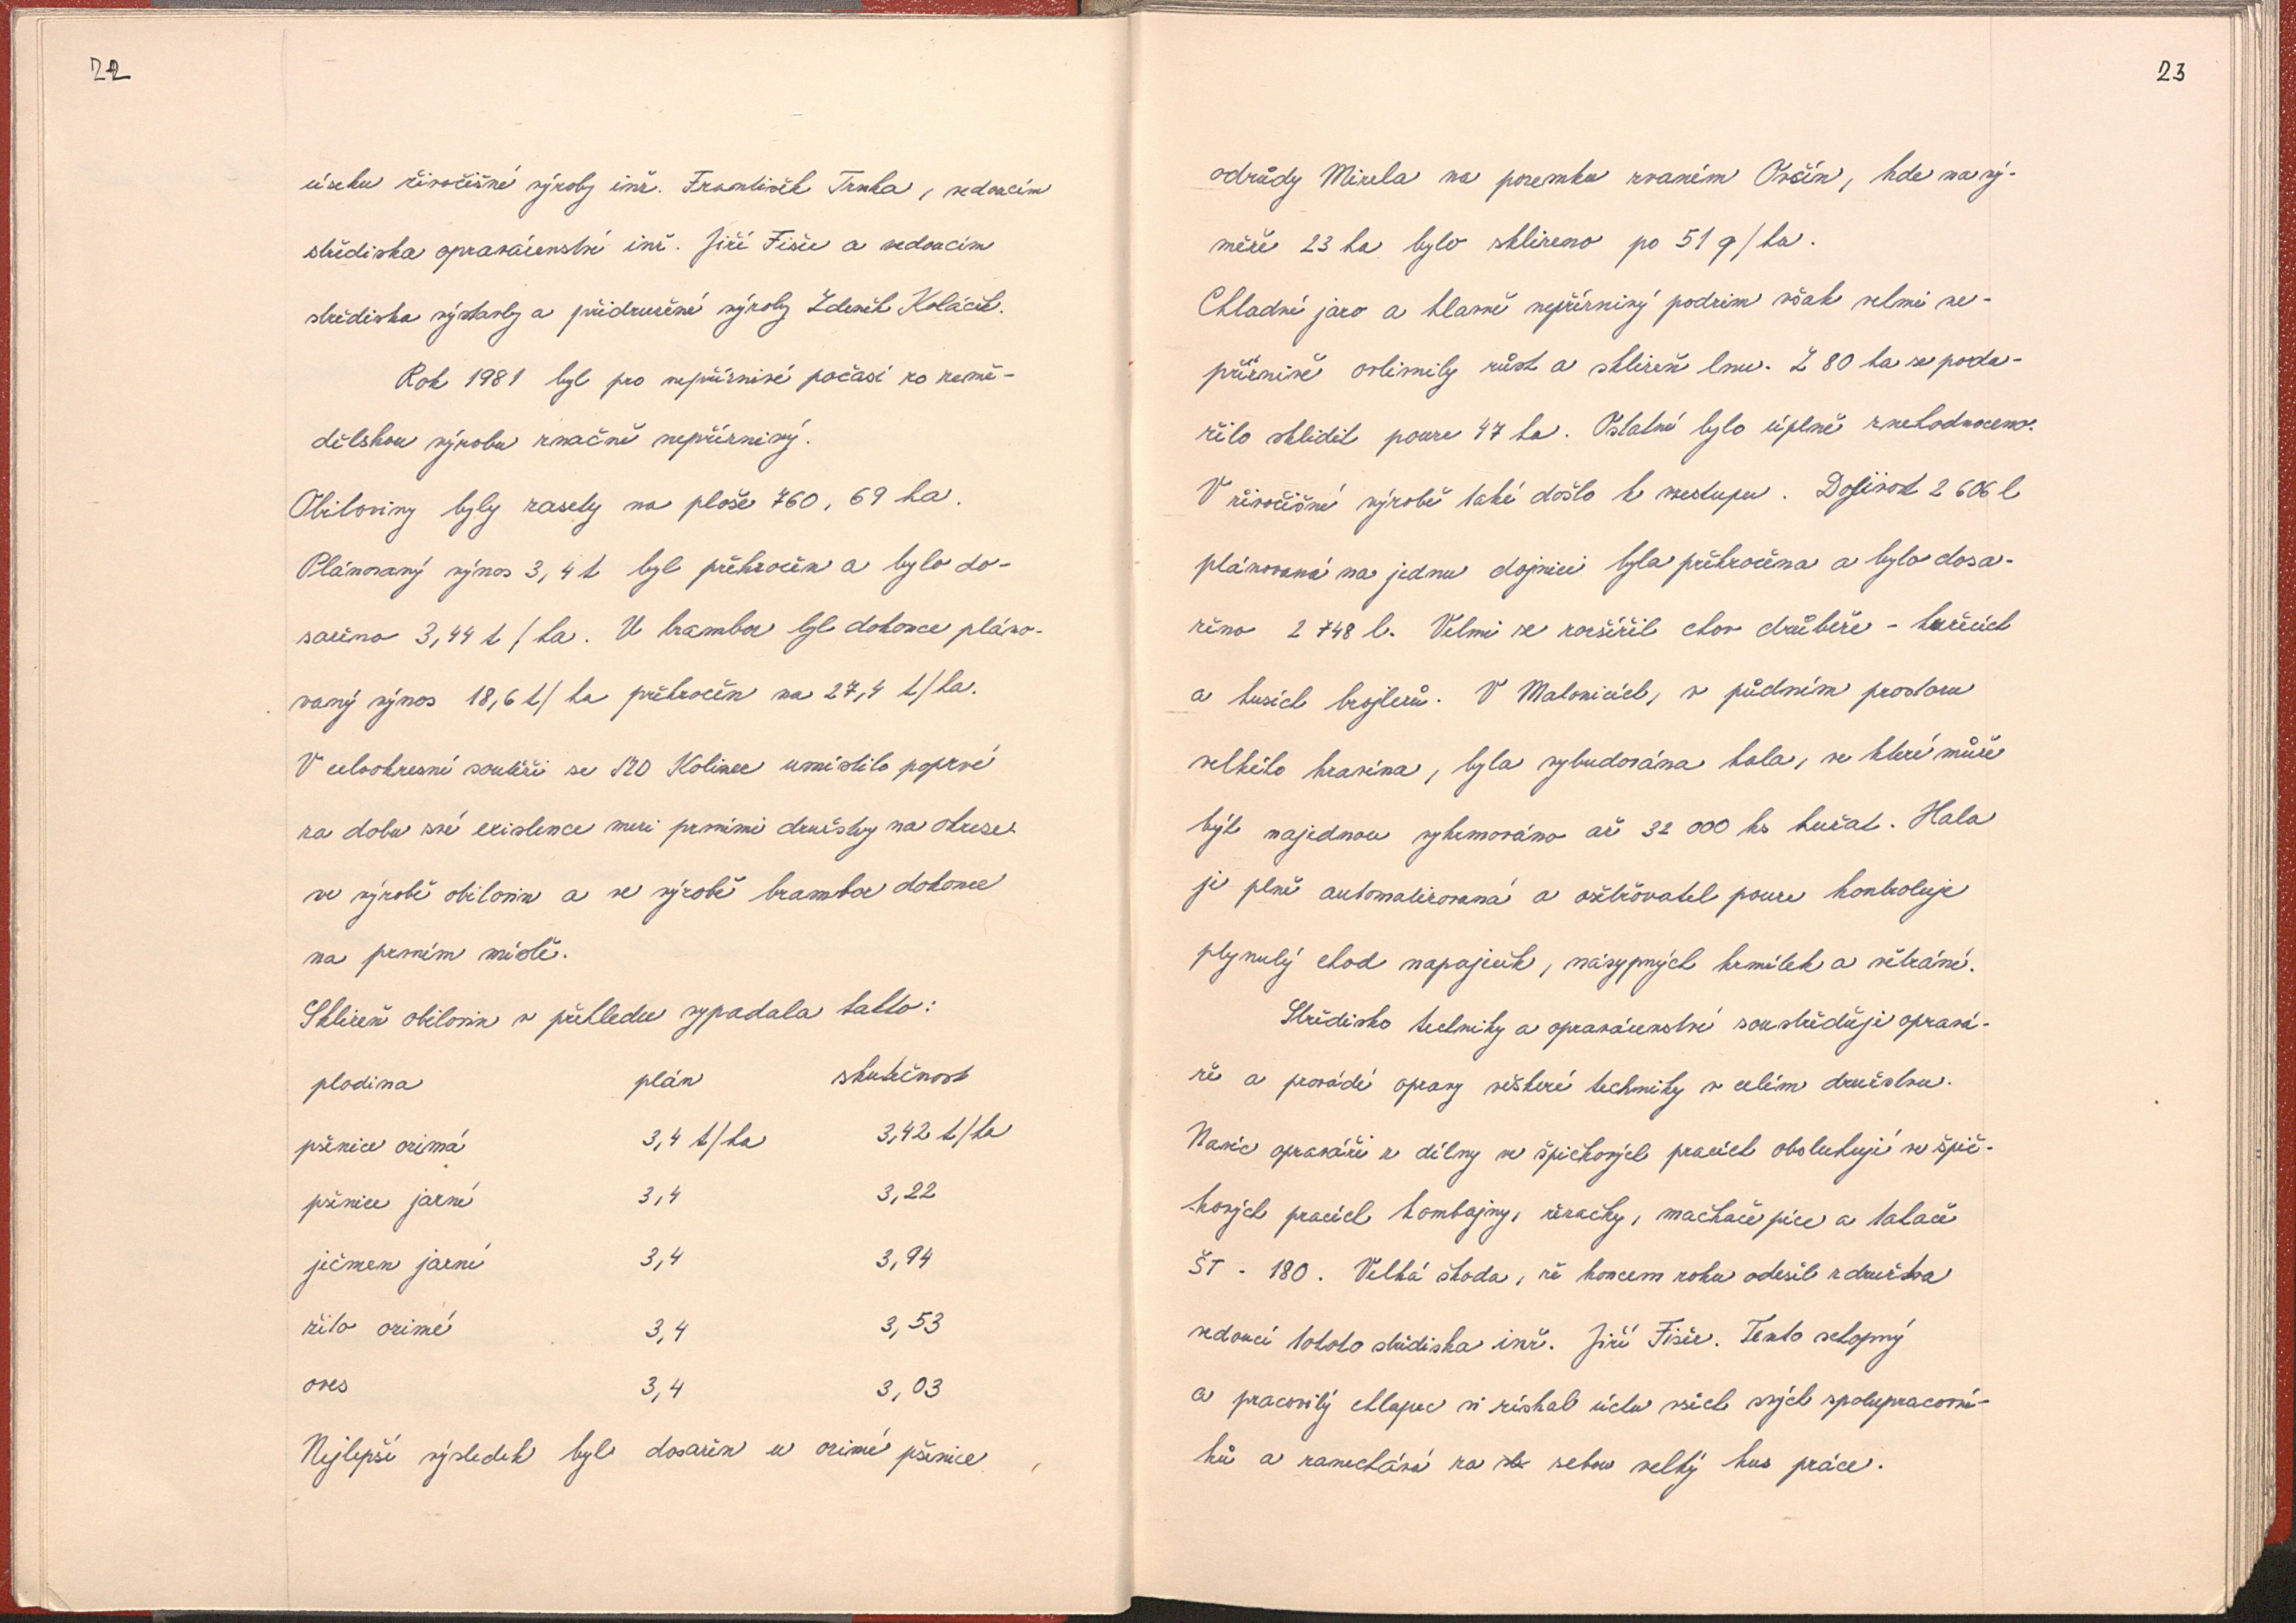 22
úseku živočišné výroby inž. František Trnka, vedoucím
střediska opravárenství inž. Jiří Fišer a vedoucím
střediska výstavby a přidružené výroby Zdeněk Koláčík.
Rok 1981 byl pro nepříznivé počasí zo země-
dělskou výrobu značně nepříznivý.
Obiloviny byly zasety na ploše 760,69 ha.
Plánovaný výnos 3,4 t byl překročen a bylo do-
saženo 3,44 t/ha. U brambor byl dokonce pláno-
vaný výnos 18,6 t/ha překročen na 27,4 t/ha.
V celookresní soutěži se JZD Kolinec umístilo poprvé
za dobu své existence mezi prvními družstvy na okrese
ve výrobě obilovin a ve výrobě brambor dokonce
na prvním místě.
Sklizeň obilovin v přehledu vypadala takto:
plodina plán skutečnost
pšenice ozimá 3,4 t/ha 3,42 t/ha
pšenice jarní 3,4 3,22
ječmen jarní 3,4 3,94
žito ozimé 3,4 3,53
oves 3,4 3,03
Nejlepší výsledek byl dosažen u ozimé pšenice
23
odrůdy Mirela na pozemku zvaném Ovčín, kde na vý-
měře 23 ha bylo sklizeno po 51 q/ha.
Chladné jaro a hlavně nepříznivý podzim však velmi ne-
příznivě ovlivnily růst a sklizeň lnu. Z 80 ha se poda-
řilo sklidit pouze 47 ha. Ostatní bylo úplně znehodnoceno.
V živočišné výrobě také došlo k vzestupu. Dojivost 2 606 l
plánovaná na jednu dojnici byla překročena a bylo dosa-
ženo 2 748 l. Velmi se rozšířil chov drůbeže - kuřecích
a husích brojlerů. V Malonicích, v půdním prostoru
velkého kravína, byla vybudována hala, ve které může
být najednou vykrmováno až 32 000 ks kuřat. Hala
je plně automatizovaná a ošetřovatel pouze kontroluje
plynulý chod napaječek, násypných krmítek a větrání.
Středisko techniky a opravárenství soustřeďuje opravá-
ře a provádí opravy veškeré techniky v celém družstvu.
Navíc opraváři z dílny ve špičkových pracích obsluhují ve špič-
kových pracích kombajny, řezačky, mačkače píce a tahače
ŠT - 180. Velká škoda, že koncem roku odešel z družstva
vedoucí tohoto střediska inž. Jiří Fišer. Tento schopný
a pracovitý chlapec si získal úctu všech svých spolupracovní-
ků a zanechává za sebou velký kus práce.